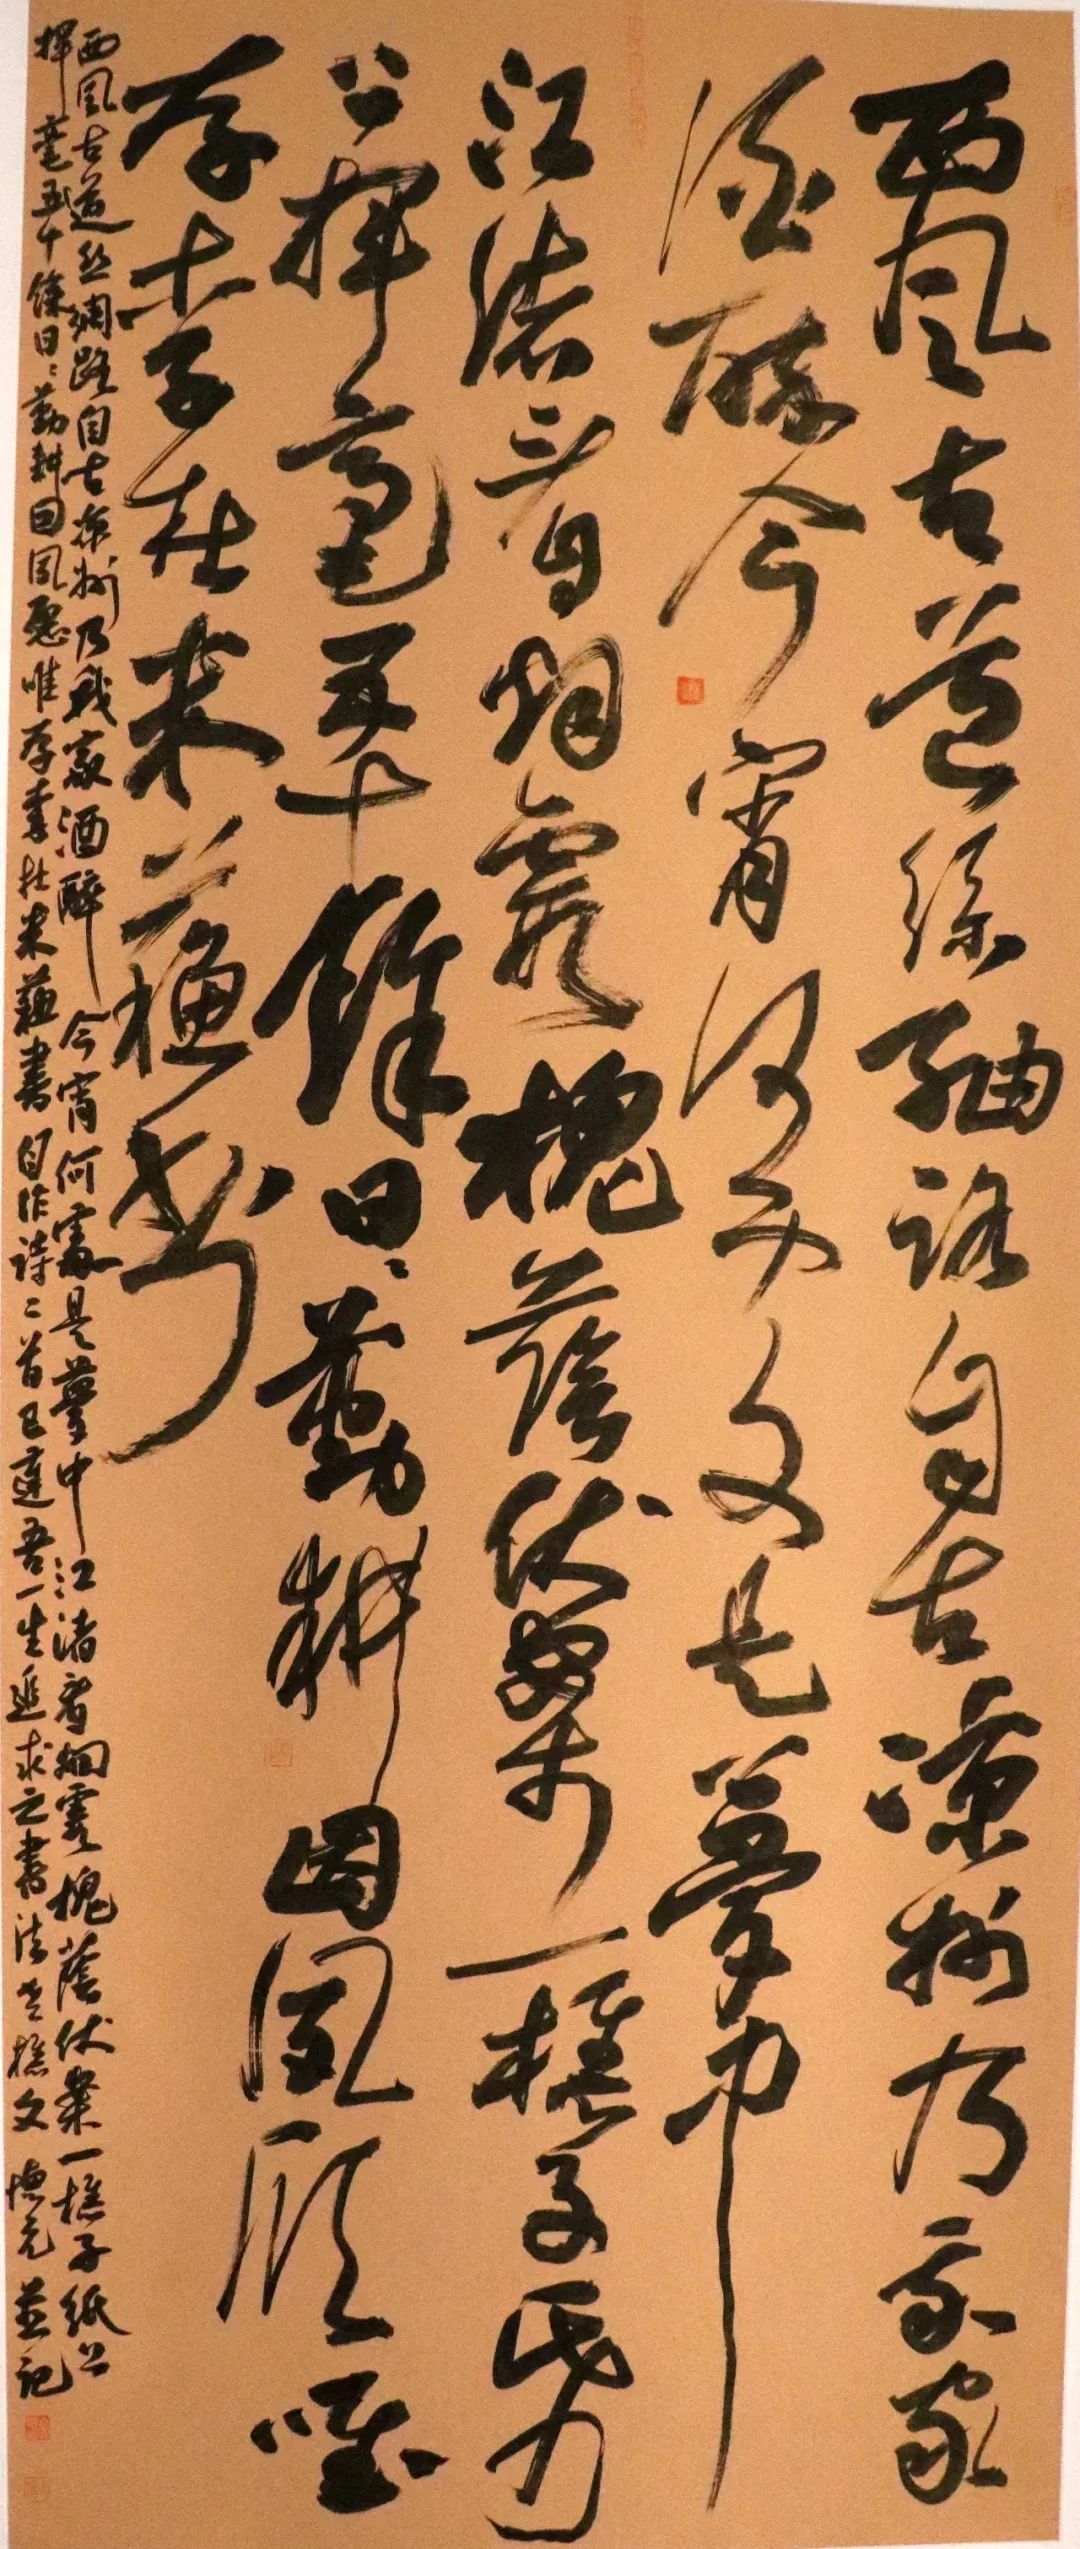 西風古道絲紬路自古凉州乃我家
酒醉今宵何處是夢中
江渚看烟霞槐蔭伏案一樵子紙
上揮毫五十餘日日勤耕因夙願唯
存李杜米蘇書
西風古道丝綢路自古凉州乃我家酒醉今宵何處是夢中江渚看烟霞槐蔭伏案一樵子紙上
揮毫五十餘日日勤耕因夙愿唯存李杜米蘇書自作詩二首以達吾一生追求之書法老樵文德元並記